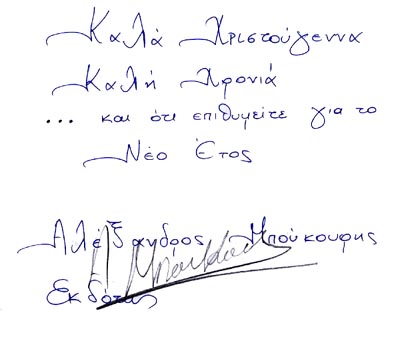 Καλά Χριστούγεννα
Καλή Χρονιά
... και ότι επιθυμείτε για το
Νέο Έτος
Αλέξανδρος Μπούκουρης
Εκδότης